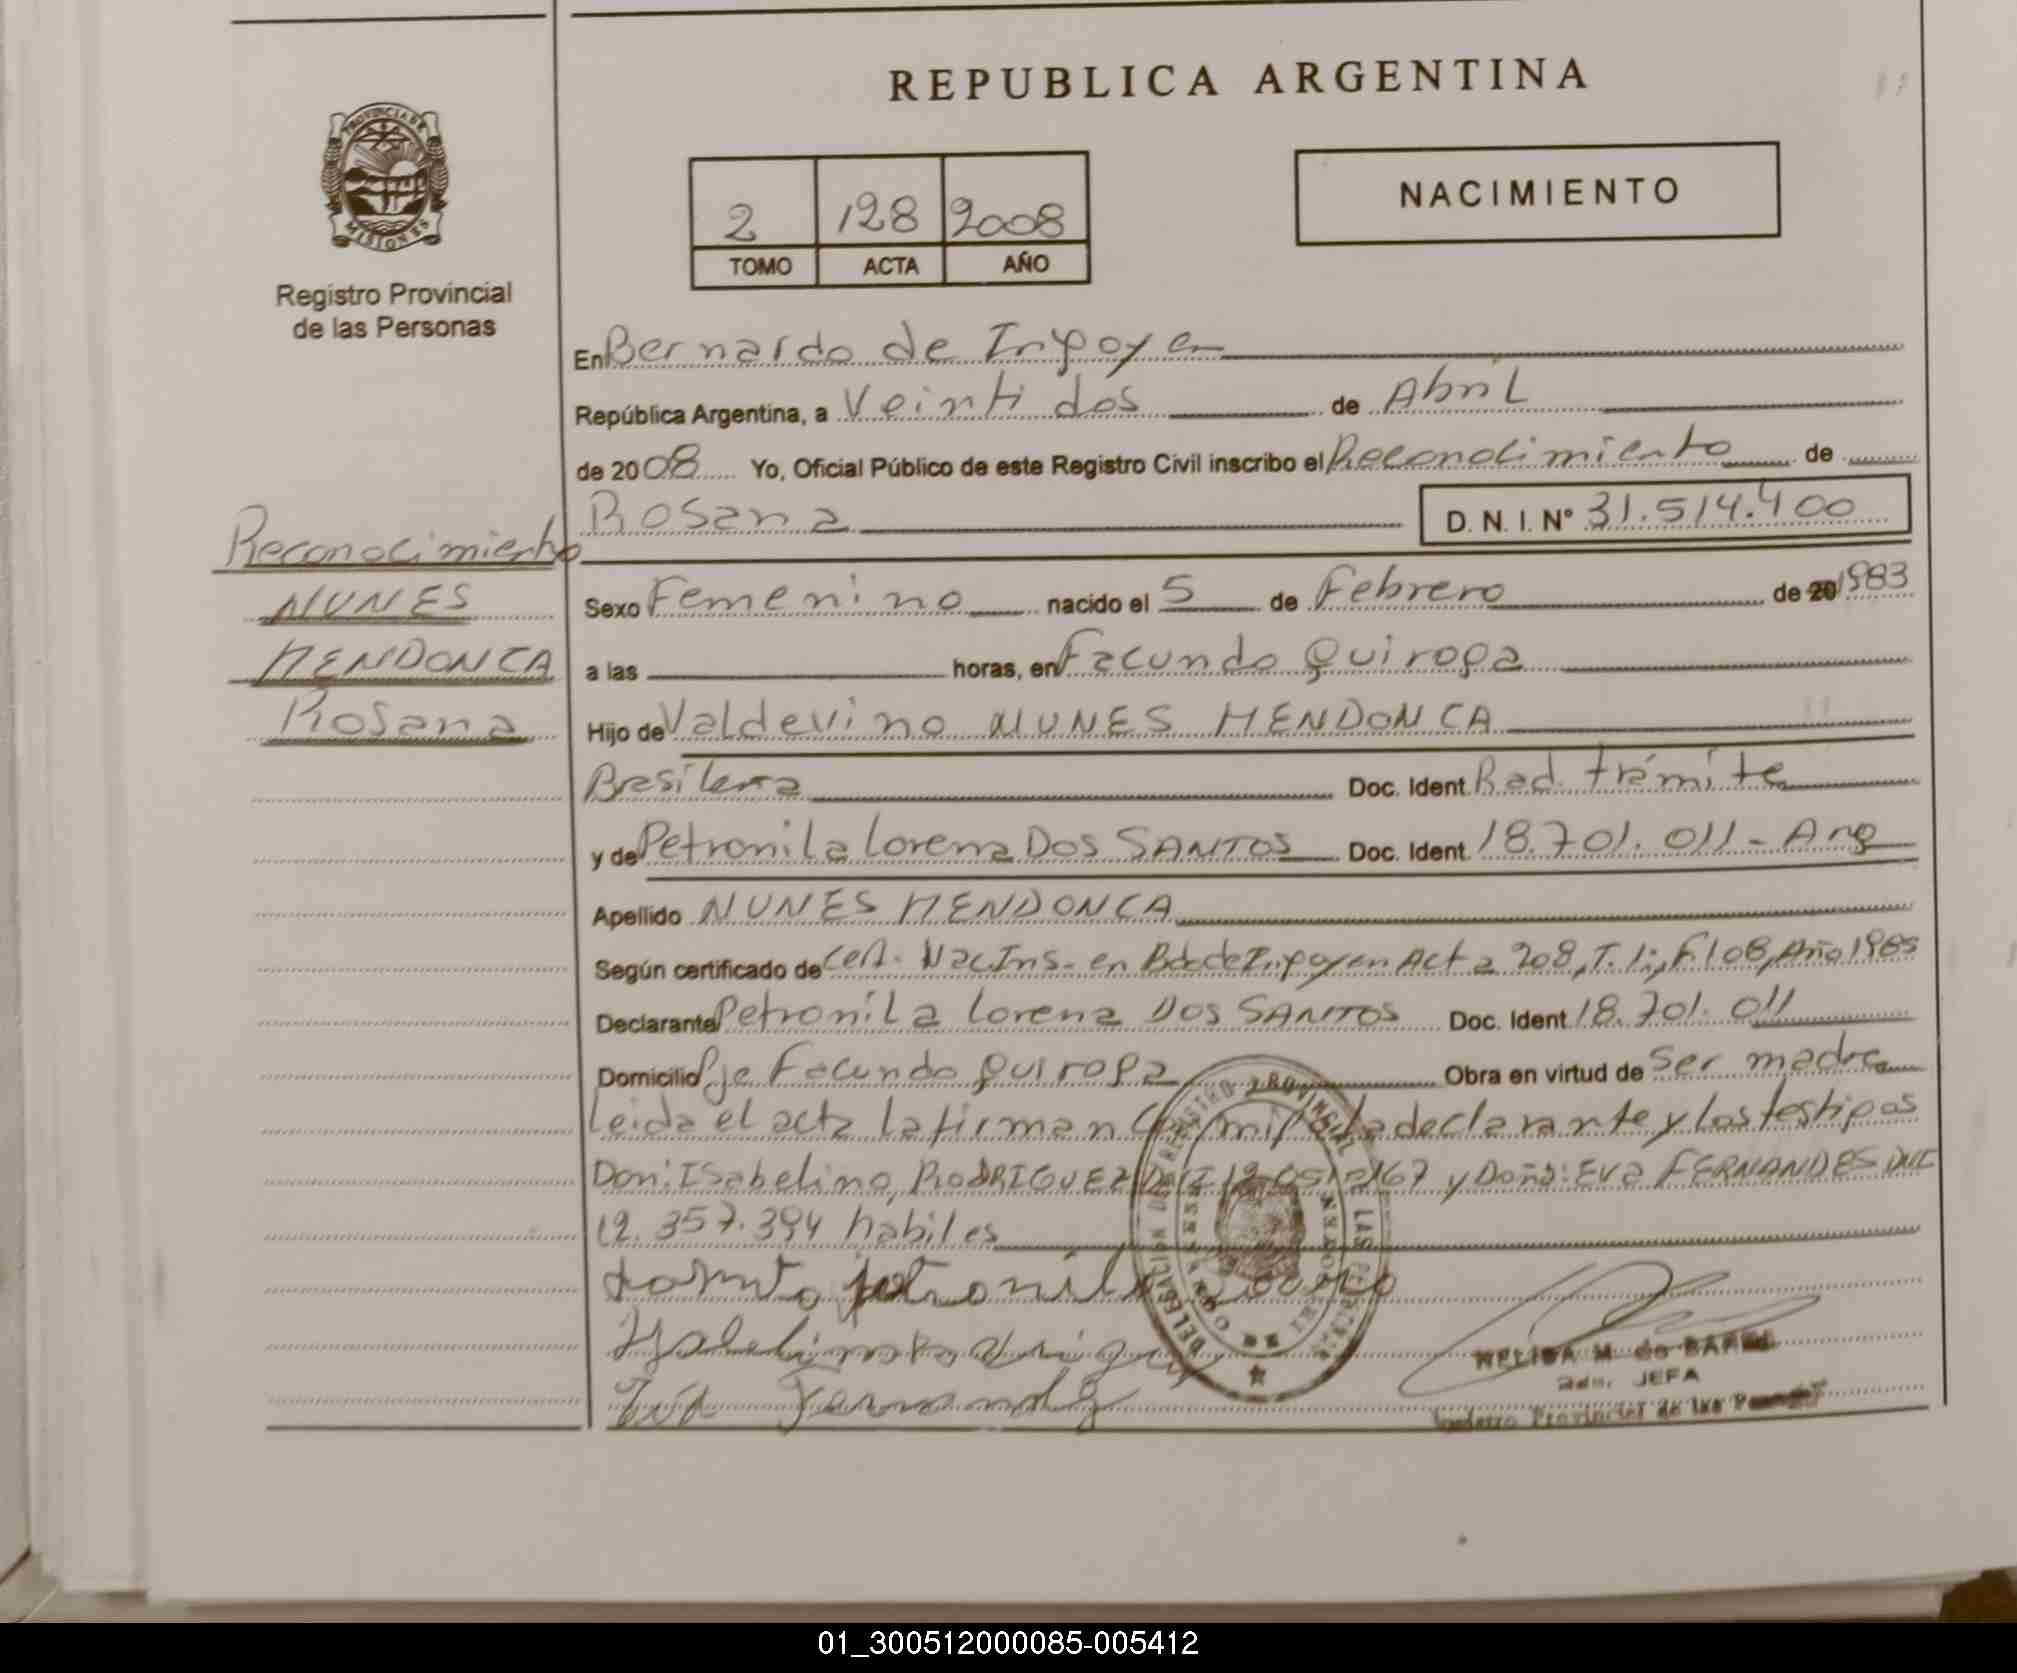 REPUBLICA ARGENTINA
PROVINCIA DE
MISIONES
Registro Provincial
de las Personas
2 128 2008
TOMO ACTA AÑO
NACIMIENTO
En Bernardo de Irigoyen
República Argentina, a Veinti dos de Abril
de 2008 Yo, Oficial Público de este Registro Civil inscribo el Reconocimiento de
Rosana D. N. I. N° 31.514.400
Reconocimiento
NUNES
MENDONCA
Rosana
Sexo Femenino nacido el 5 de Febrero de 20 1983
a las horas, en Facundo Quiroga
Hijo de Valdevino NUNES MENDONCA
Brasilera Doc. Ident. Rad. trámite
y de Petronila Lorena DOS SANTOS Doc. Ident. 18.701.011 - Arg
Apellido NUNES MENDONCA
Según certificado de Cert. Nac Ins- en Bdo de Irigoyen Acta 208, T. 1:, F. 108, Año 1985
Declarante Petronila Lorena DOS SANTOS Doc. Ident 18.701.011
Domicilio Pje Facundo Quiroga Obra en virtud de Ser madre
Leida el acta la firman Con mi la declarante y los testigos
Don: Isabelino RODRIGUEZ DNI y Doña: Eva FERNANDES DNI
12.357.394 habiles
petronila
Isabelino Rodriguez
Eva Fernandez
DELEGACION DEL REGISTRO PROVINCIAL DE LAS
MISIONES
JEFA
Provincial de las
01_300512000085-005412